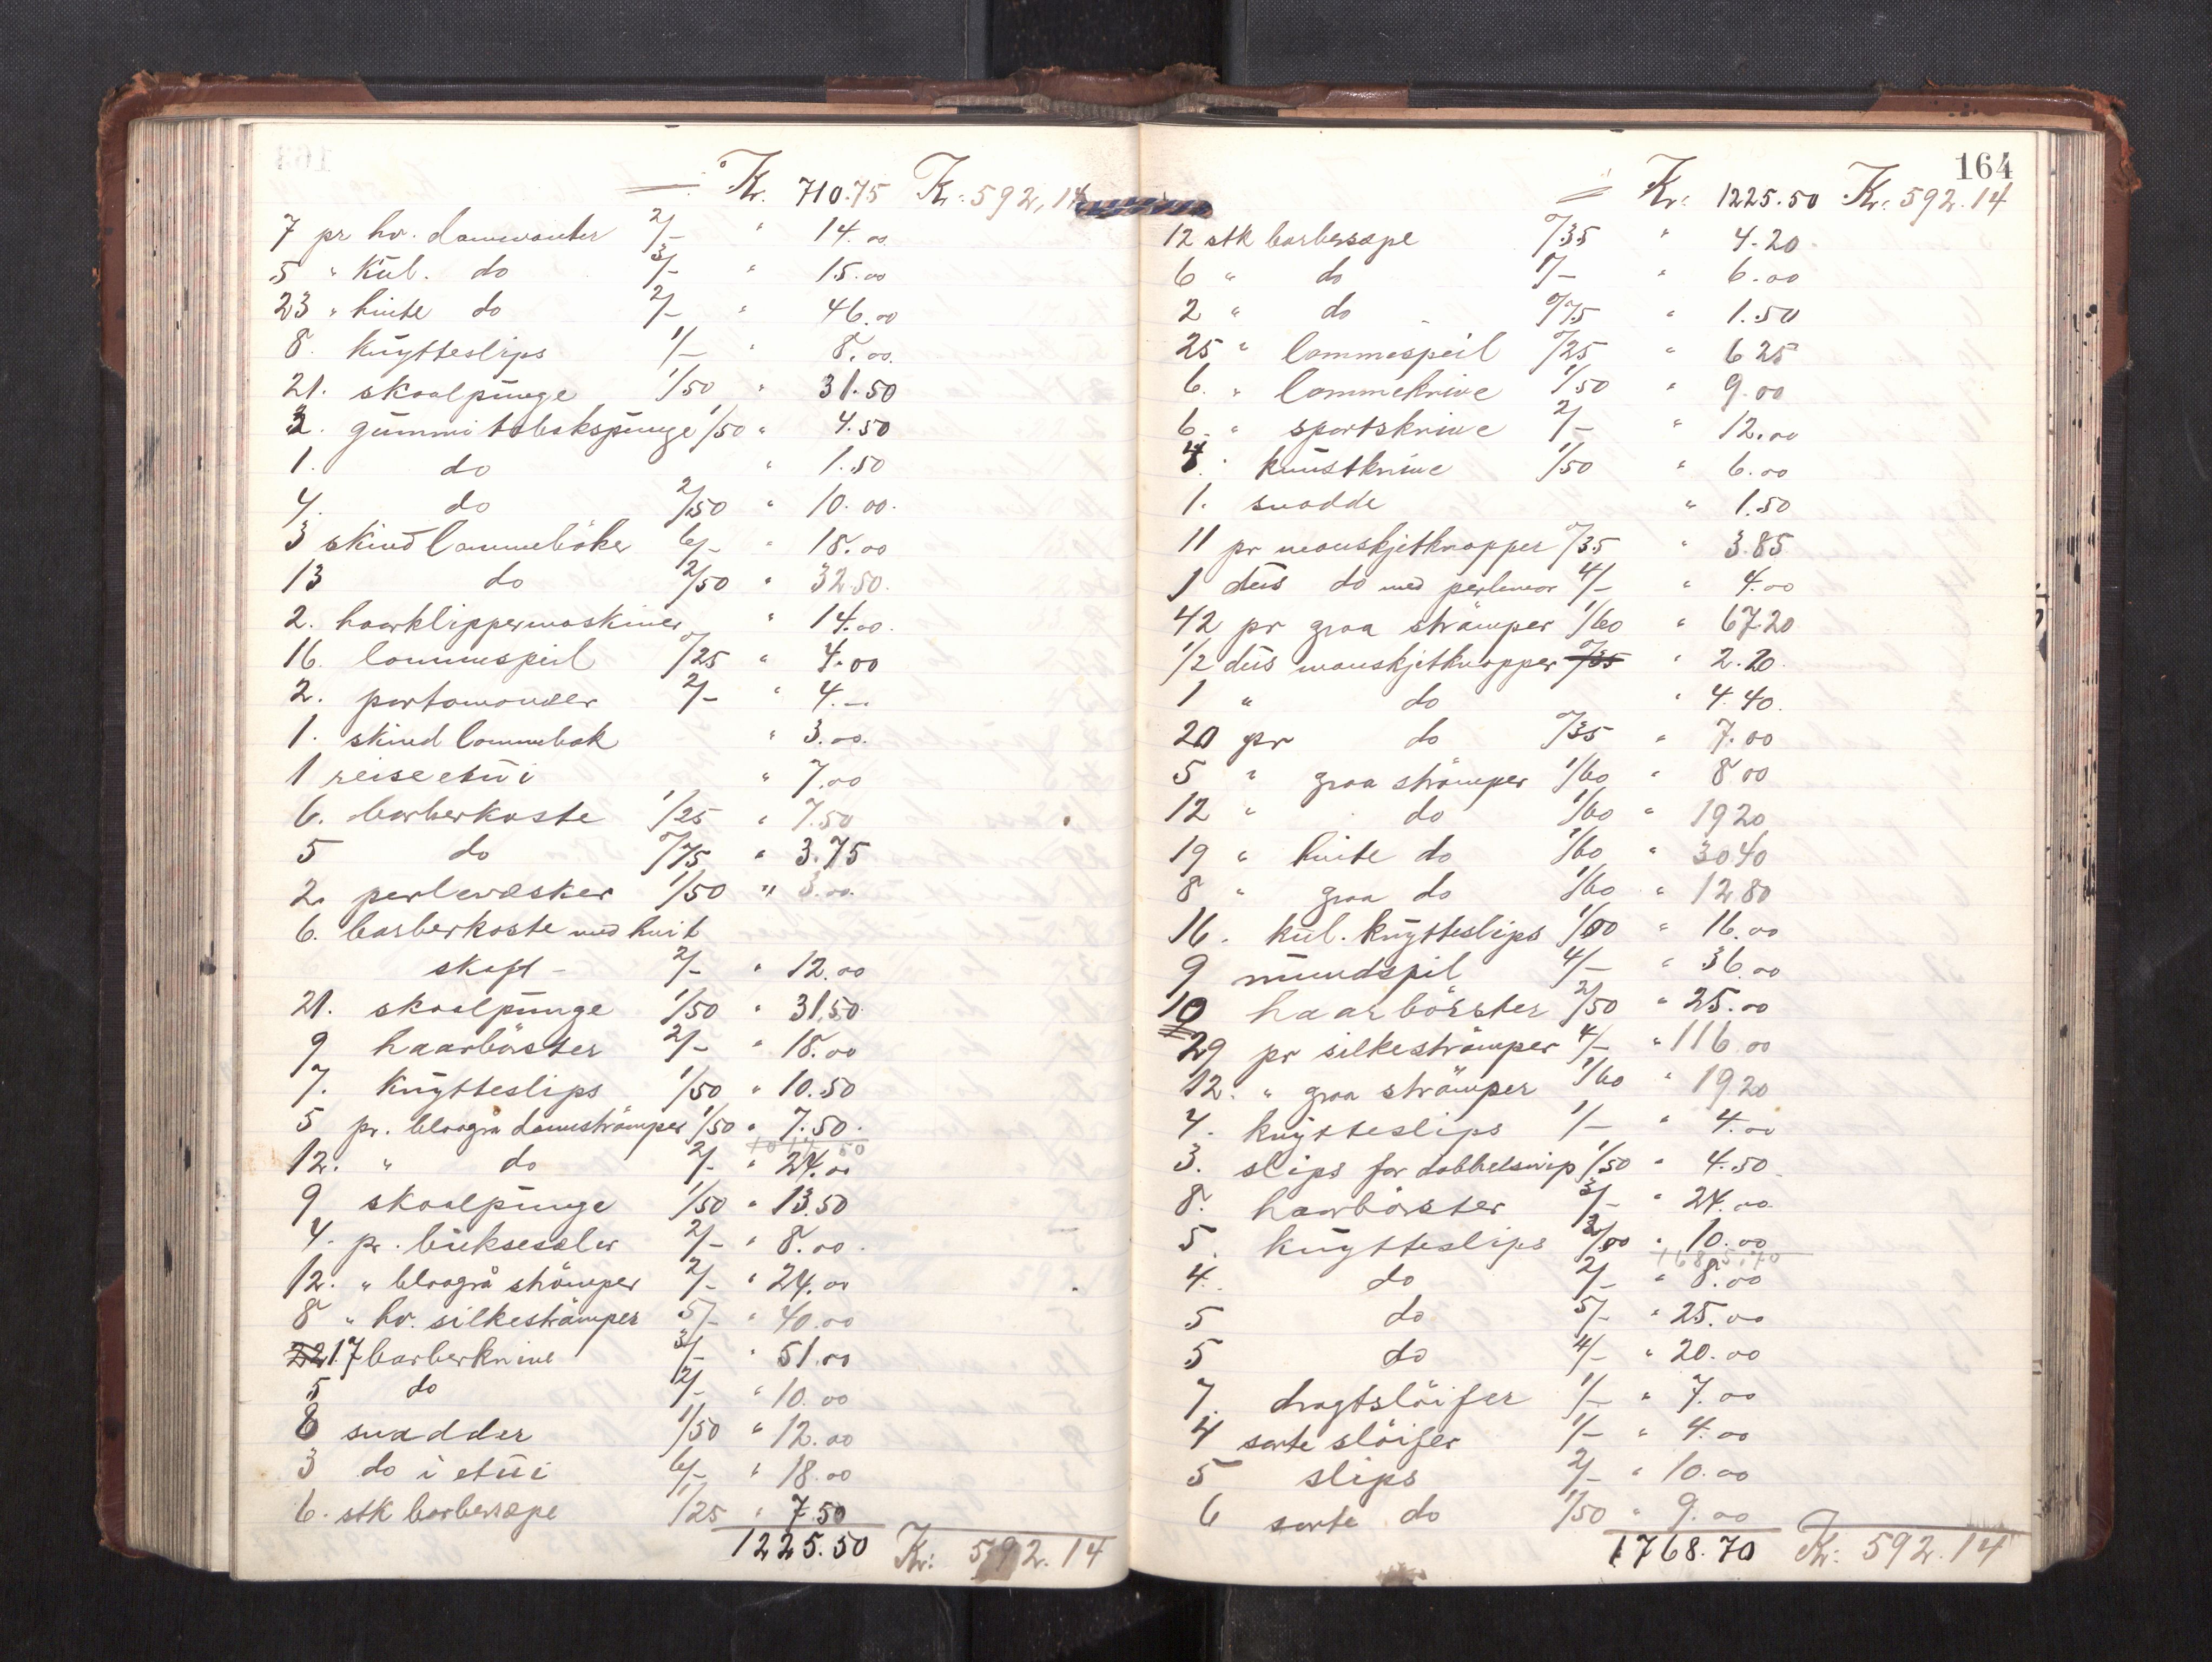 Kr. 710.75 Kr. 592,14
7 pr hv. damevanter 2/- " 14.00
5 " kul. do 3/- " 15.00
23 " hvite do 2/- " 46.00
8. knytteslips 1/- " 8.00
21. skaalpunge 1/50 " 31.50
3. gummi tobakspunge 1/50 " 4.50
1. do " 1.50
4. do 2/50 " 10.00
3 skind lommebøker 6/- " 18.00
13 do 2/50 " 32.50
2. haarklippermaskiner " 14.00
16. lommespeil 0/25 " 4.00
2. portomonæer 2/- " 4.-
1. skind lommebok " 3.00
1 reiseetui " 7.00
6. barberkoste 1/25 " 7.50
5 do 0/75 " 3.75
2. perlevæsker 1/50 " 3.00
6. barberkoste med hvit
skaft - 2/- " 12.00
21. skaalpunge 1/50 " 31.50
9 haarbörster 2/- " 18.00
7. knytteslips 1/50 " 10.50
5 pr. blaagrå dameströmper 1/50 " 7.50
12. " do 2/- " 24.00
9 skaalpunge 1/50 " 13.50
4. pr. bukseseler 2/- " 8.00
12. " blaagrå strömper 2/- " 24.00
8 " hv. silkeströmper 5/- " 40.00
22 17 barberknive 3/- " 51.00
5 do 2/- " 10.00
8 snadder 1/50 " 12.00
3 do i etui 6/- " 18.00
6. stk barbersæpe 1/25 " 7.50
1225.50 Kr: 592.14
164
Kr: 1225.50 Kr: 592.14
12 stk barbersæpe 0/35 " 4.20
6 " do 1/- " 6.00
2 " do 0/75 " 1.50
25 " lommespeil 0/25 " 6 25
6. " lommeknive 1/50 " 9.00
6. " sportsknive 2/- " 12.00
4. " knivstknive 1/50 " 6.00
1. snadde " 1.50
11 pr manskjetknapper 0/35 " 3.85
1 dus do med perlemor 4/- " 4.00
42 pr graa strömper 1/60 " 67.20
1/2 dus manskjetknapper 0/35 " 2.20
1 " do " 4.40
20 pr do 0/35 " 7.00
5 " graa strömper 1/60 " 8 00
12 " do 1/60 " 19 20
19 " hvite do 1/60 " 30 40
8 " graa do 1/60 " 12 80
16. kul. knytteslips 1/00 " 16.00
9 mundspil 4/- " 36.00
10 haarbörster 2/50 " 25.00
29 pr silkeströmper 4/- " 116.00
12. " graa strömper 1/60 " 19 20
4. knytteslips 1/- " 4.00
3. slips for dobbelsnip 1/50 " 4.50
8. haarbörster 3/- " 24.00
5. knytteslips 2/00 " 10.00
1685.70
4. do 2/- " 8.00
5 do 5/- " 25.00
5 do 4/- " 20.00
7. dragtslöifer 1/- " 7.00
4 sorte slöifer 1/- " 4.00
5 slips 2/- " 10.00
6 sorte do 1/50 " 9.00
1768.70 Kr: 592.14